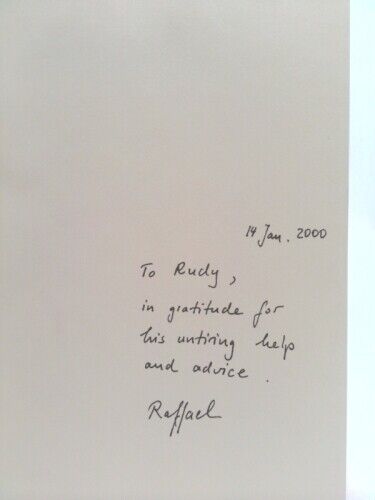 14 Jan. 2000
To Rudy,
in gratitude for
his untiring help
and advice.
Raffael